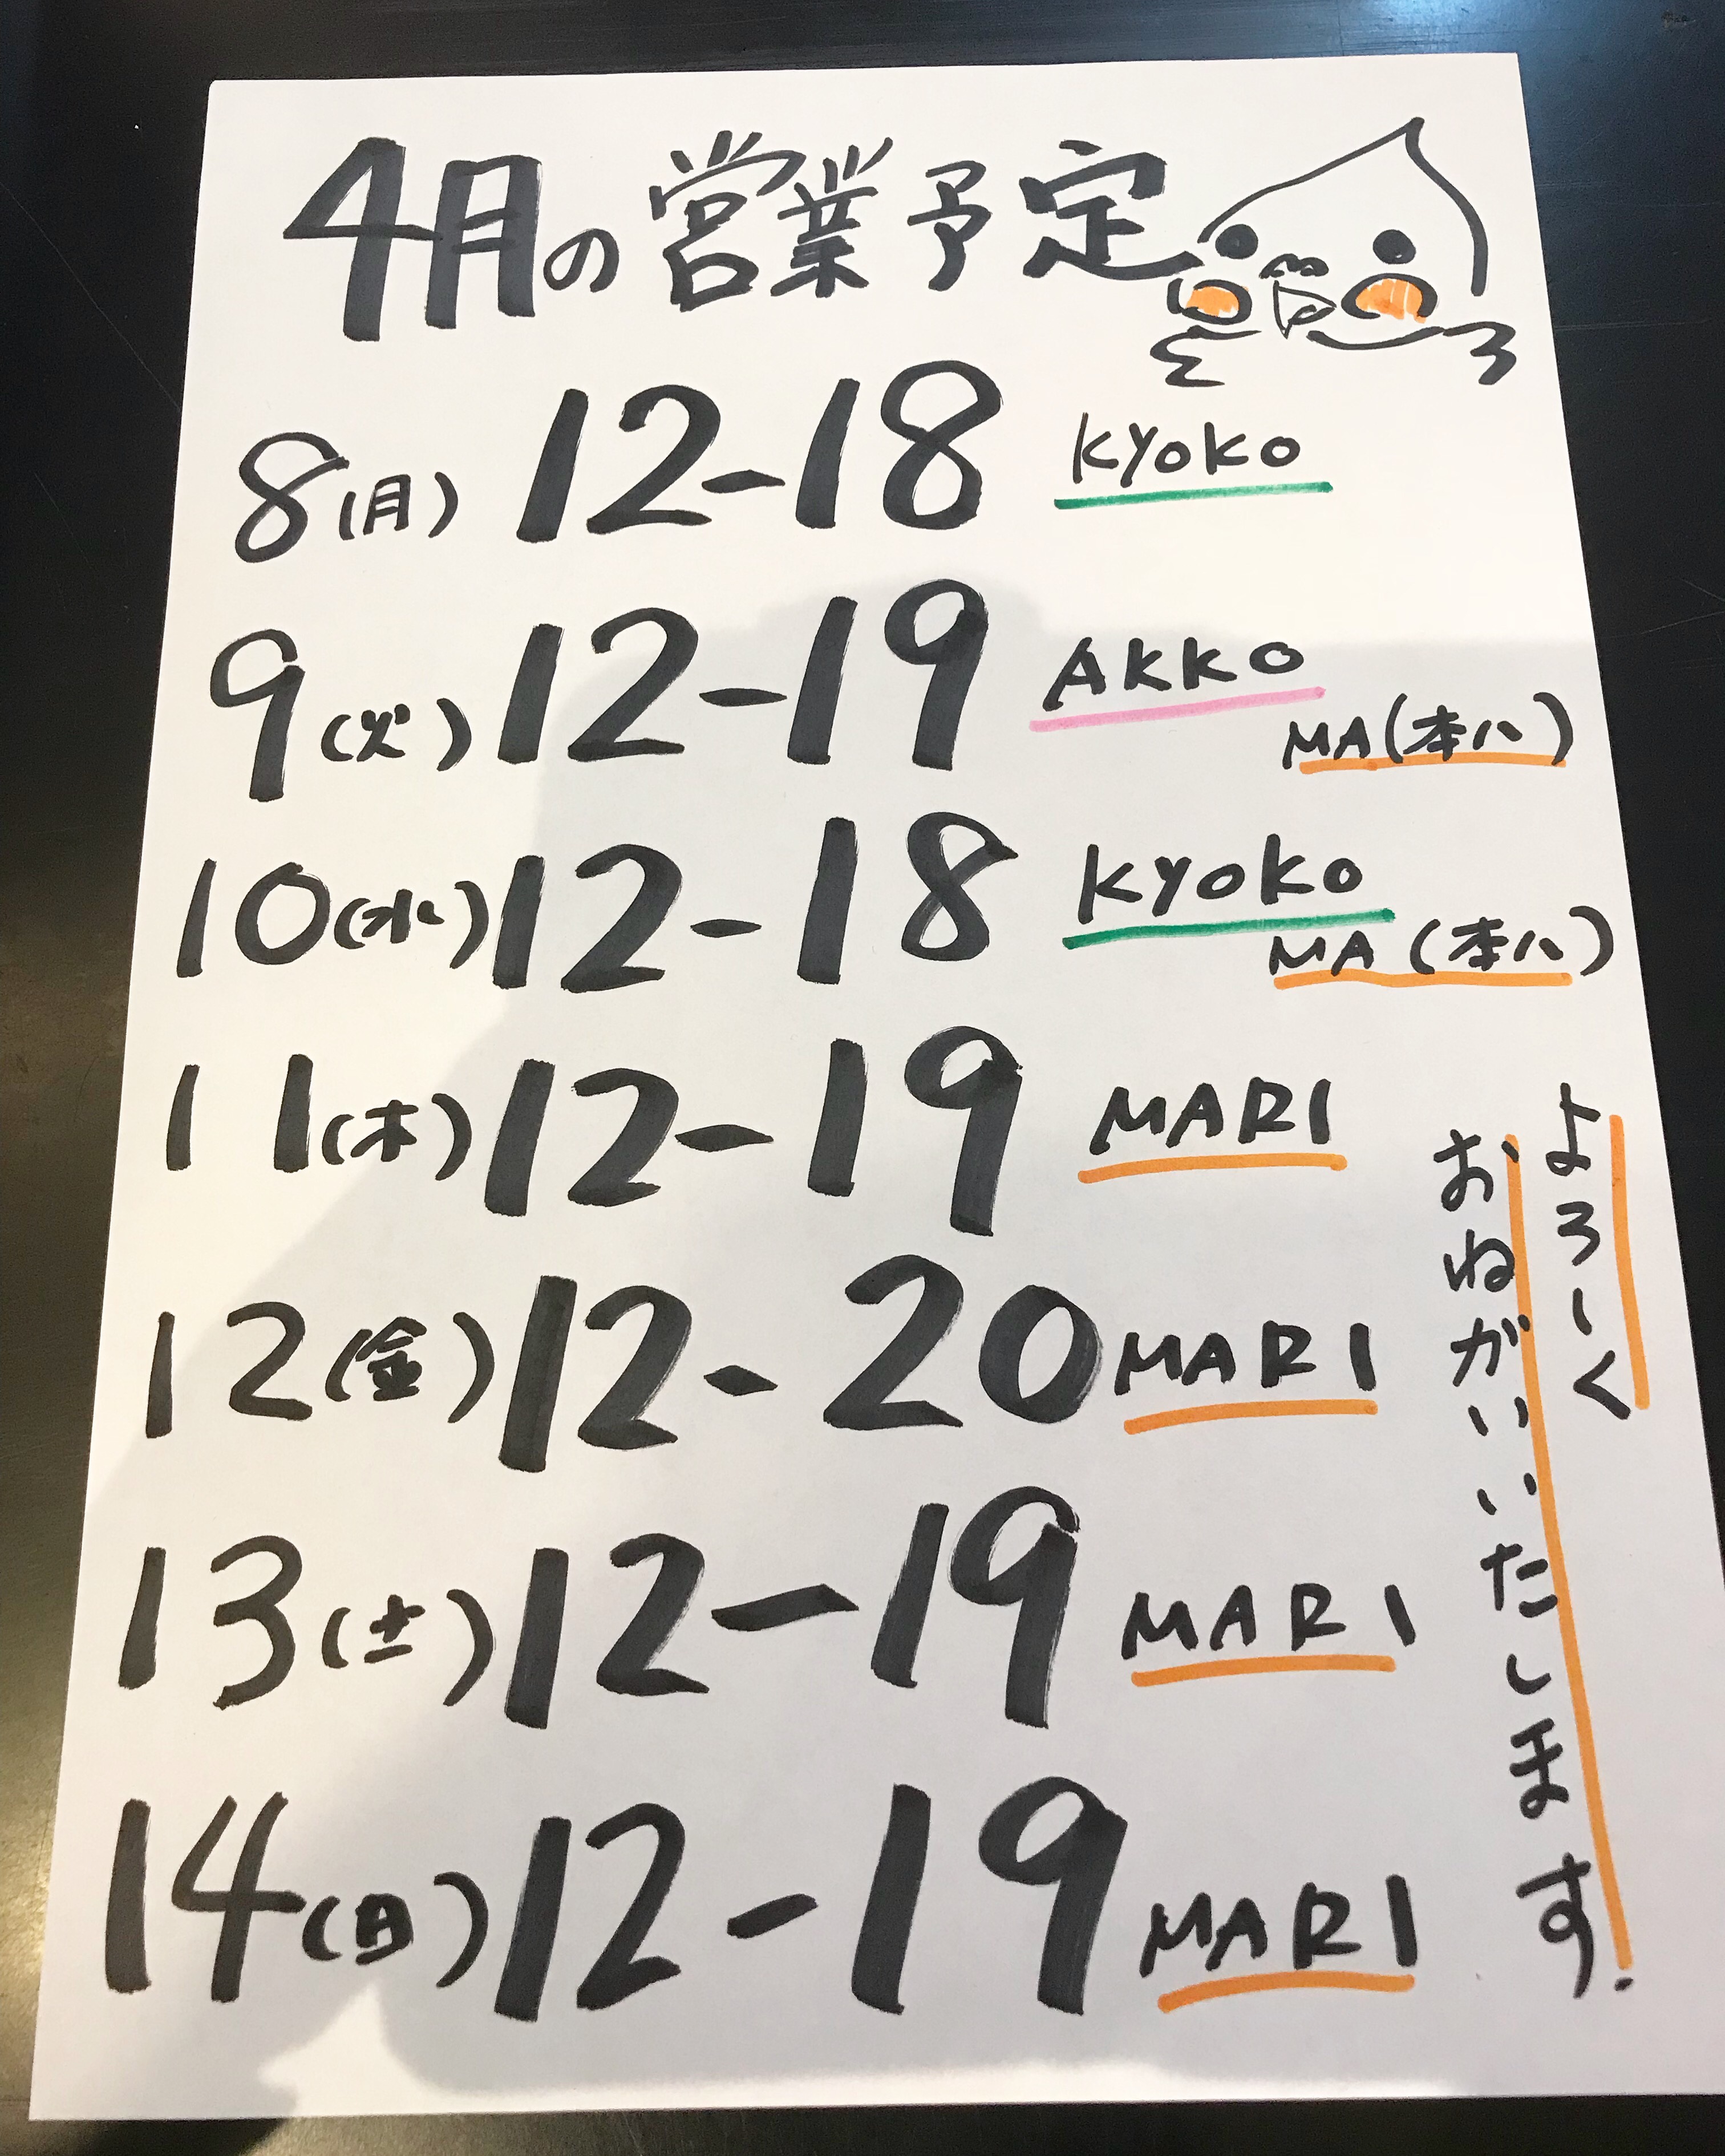 4月の営業予定
8(月) 12-18 KYOKO
9(火) 12-19 AKKO
MA(本八)
10(水) 12-18 KYOKO
MA(本八)
11(木) 12-19 MARI
12(金) 12-20 MARI
13(土) 12-19 MARI
14(日) 12-19 MARI
よろしく
おねがいいたします.